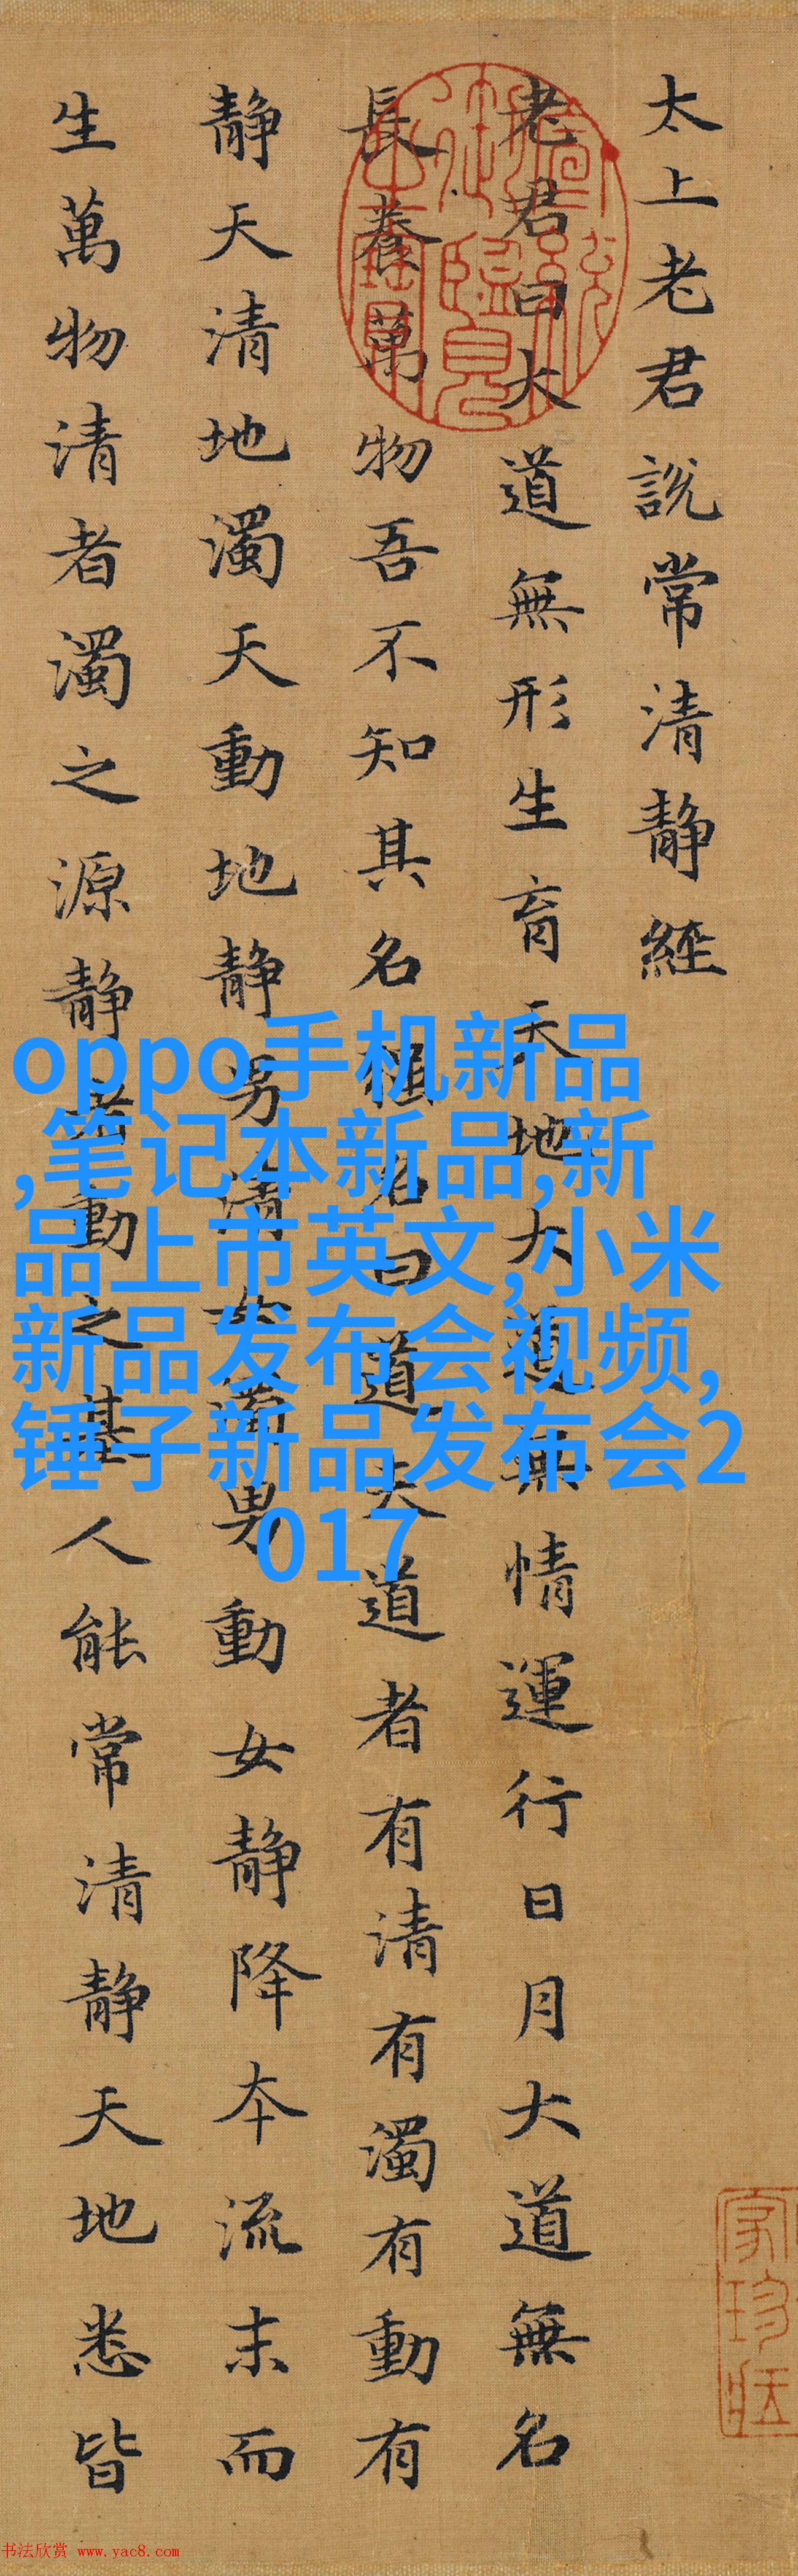 太上老君說常清靜經
老君曰大道無形生育天地大道無情運行日月大道無名
長養萬物吾不知其名強名曰道夫道者有清有濁有動有
靜天清地濁天動地靜男清女濁男動女靜降本流末而
生萬物清者濁之源靜者動之基人能常清靜天地悉皆
宣統御覽之寶
家珍賞
oppo手机新品
,笔记本新品,新
品上市英文,小米
新品发布会视频,
锤子新品发布会2
017
书法欣赏 www.yac8.com